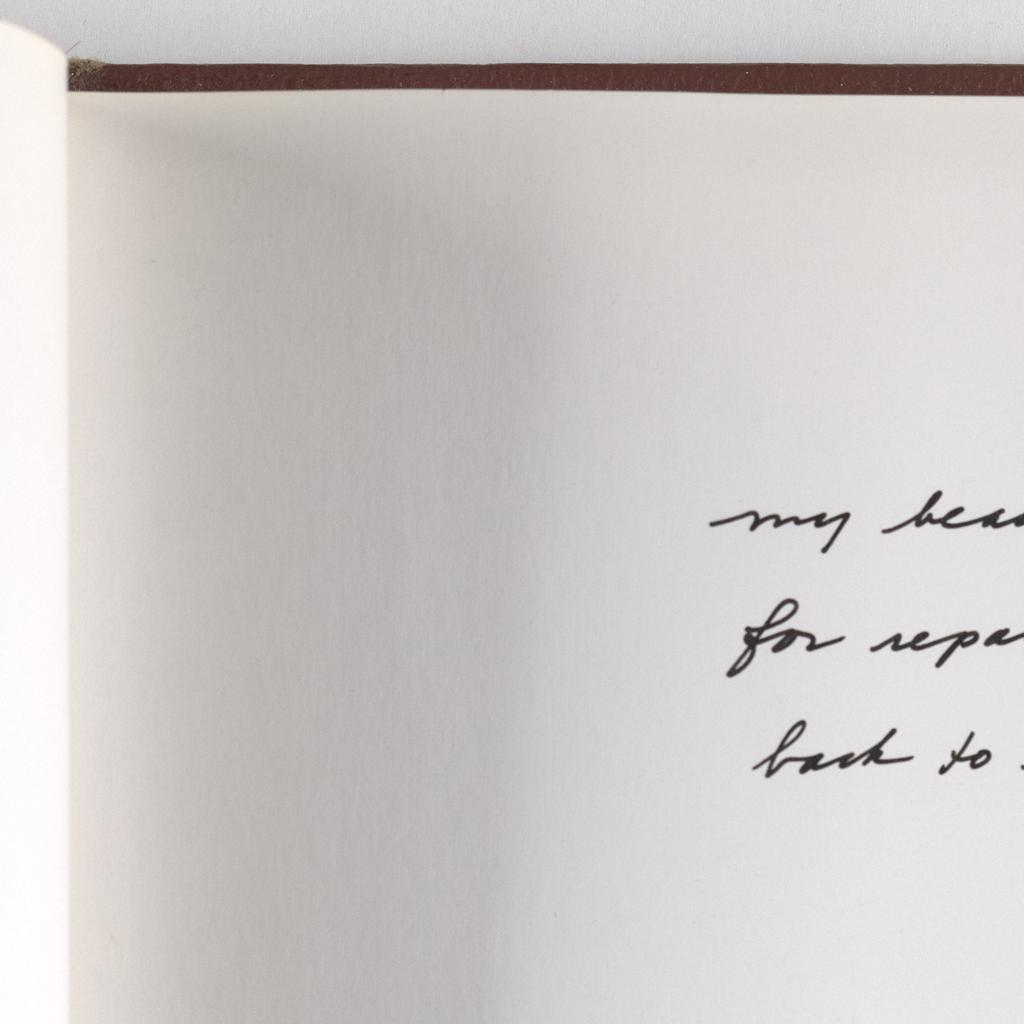 my beau
for repa
back to